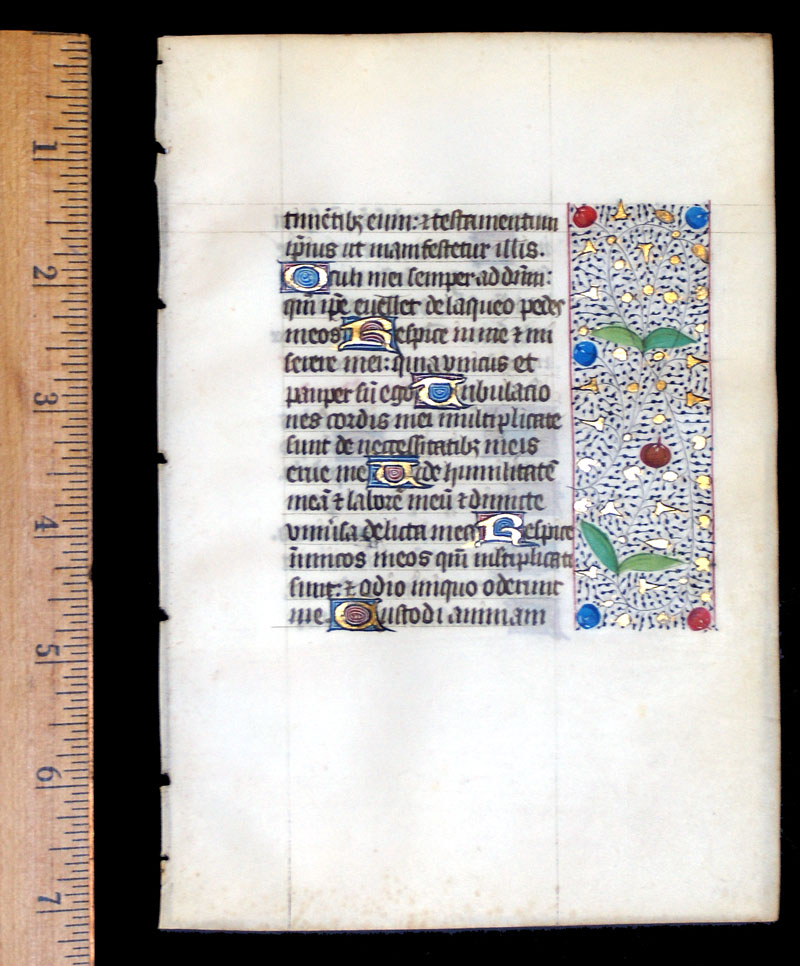 timētibʒ eum: ⁊ testamentum
ip̄ius ut manifestetur illis.
Oculi mei semper ad dn̄m:
qm̄ ip̄e euellet de laqueo pedes
meos Respice in me ⁊ mi
serere mei: quia vnicus et
pauper su᷑ ego Tribulacio
nes cordis mei multiplicate
sunt de neccessitatibʒ meis
erue me Uide humilitatē
meā ⁊ laborē meū ⁊ dimitte
vniuīsa delicta mea Respice
īnimicos meos qm̄ multiplicati
sunt: ⁊ odio iniquo oderunt
me Custodi animam
1
2
3
4
5
6
7